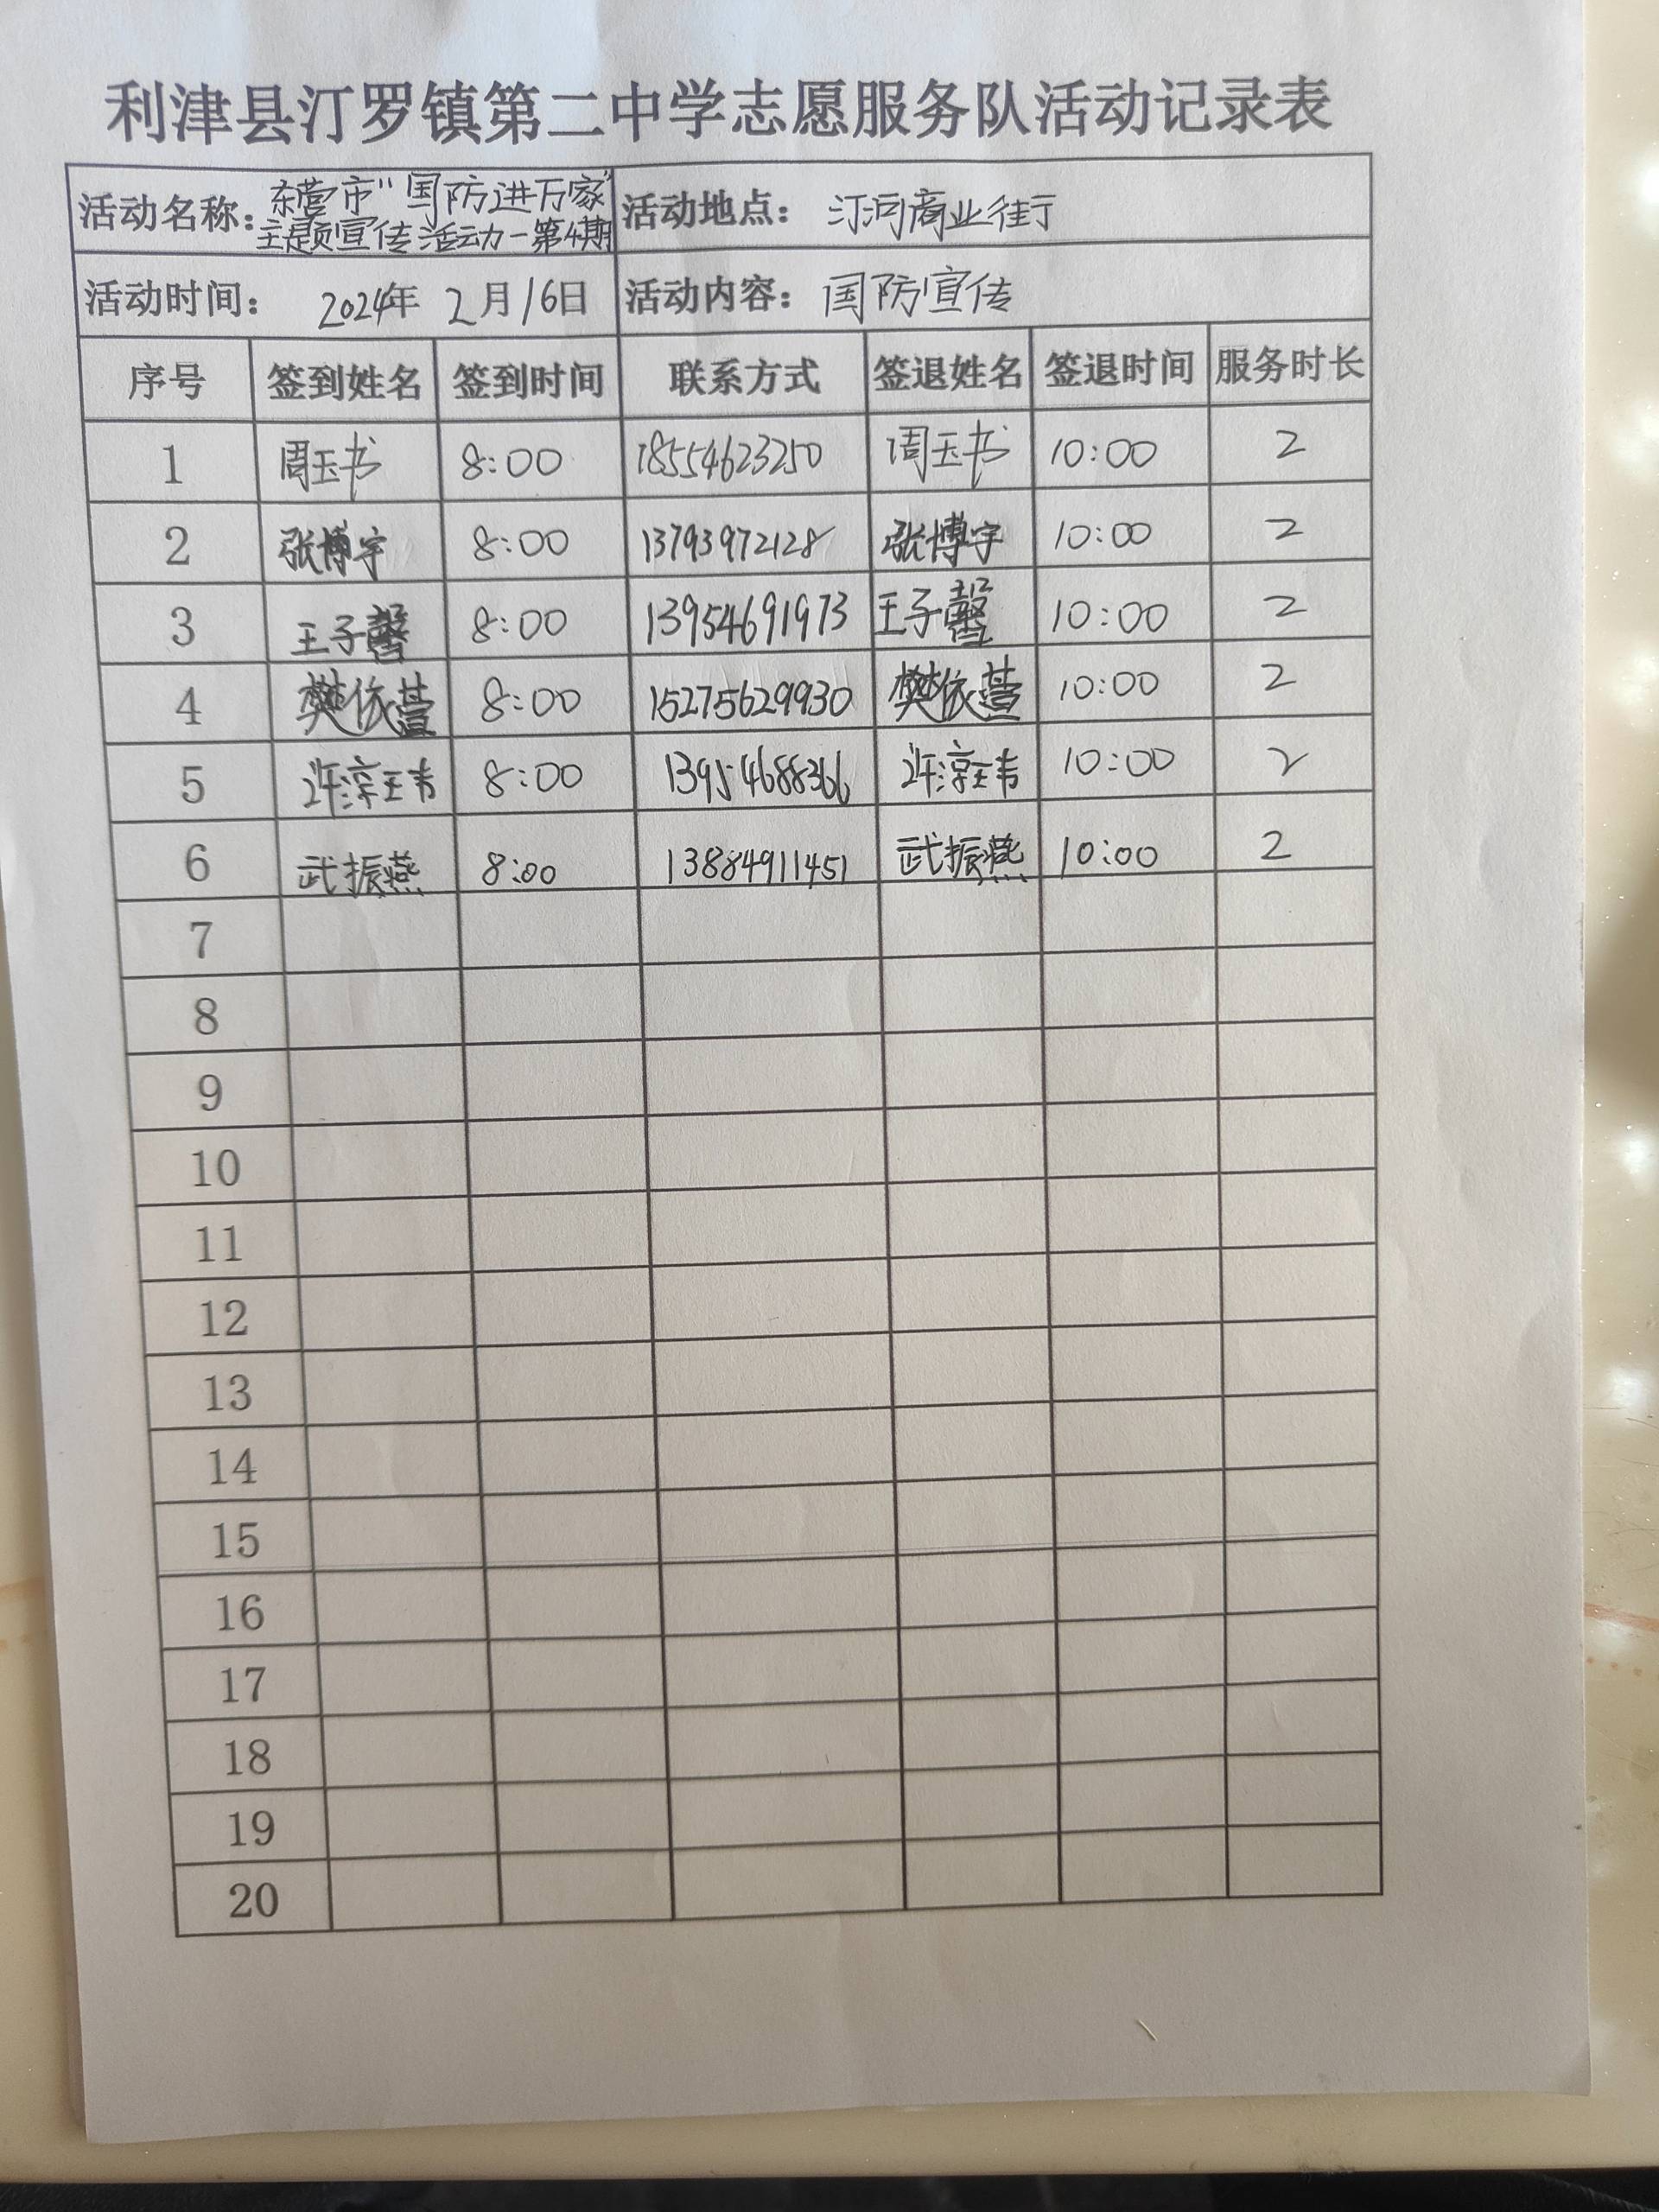 利津县汀罗镇第二中学志愿服务队活动记录表
活动名称：东营市“国防进万家” 活动地点：汀河商业街
主题宣传活动－第4期
活动时间：2024年2月16日 活动内容：国防宣传
序号 签到姓名 签到时间 联系方式 签退姓名 签退时间 服务时长
1 周玉书 8:00 18554623250 周玉书 10:00 2
2 张博宇 8:00 13793972128 张博宇 10:00 2
3 王子馨 8:00 13954691973 王子馨 10:00 2
4 樊依萱 8:00 15275629930 樊依萱 10:00 2
5 许淳玮 8:00 13954688366 许淳玮 10:00 2
6 武振燕 8:00 13884911451 武振燕 10:00 2
7
8
9
10
11
12
13
14
15
16
17
18
19
20